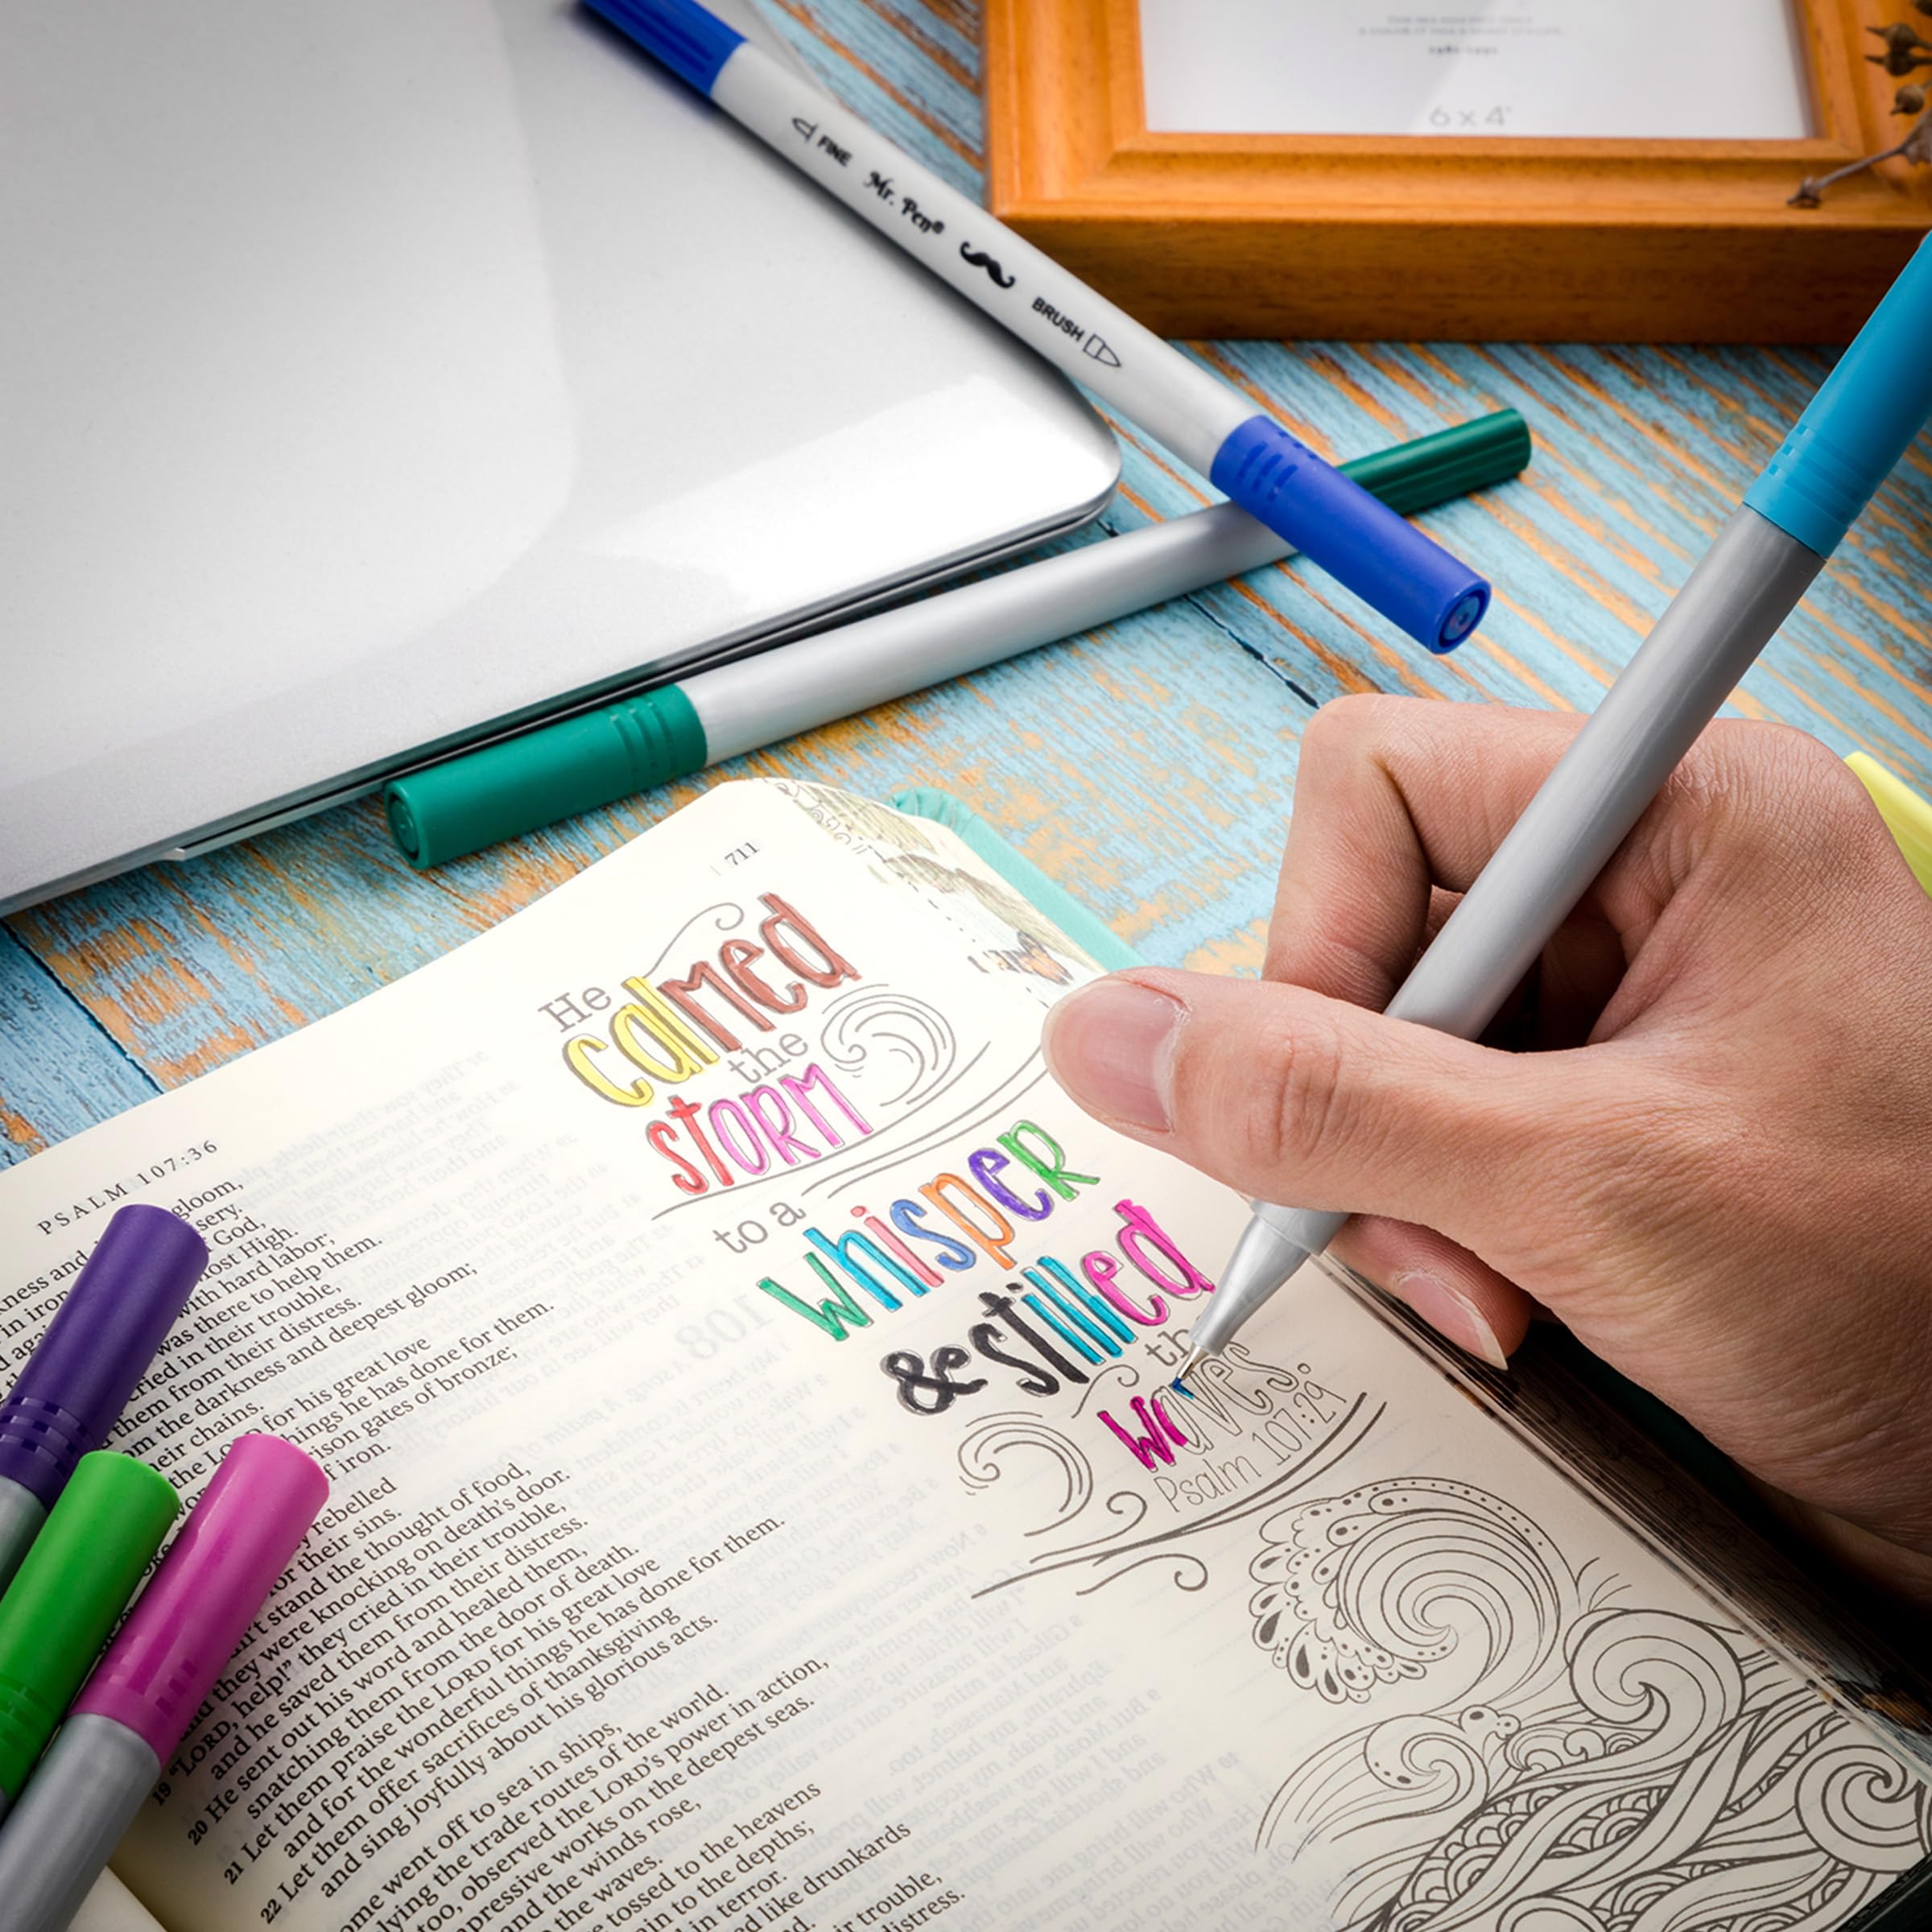 6 x 4"
FINE Mr. Pen® BRUSH
711
He
calmed
the
STORM
to a
whisper
& stilled
th
waves.
Psalm 107:29
PSALM 107:36
gloom,
God,
most High.
with hard labor;
was there to help them.
cried in their trouble,
them from their distress.
from the darkness and deepest gloom;
their chains.
the LORD for his great love
things he has done for them.
prison gates of bronze;
of iron.
rebelled
for their sins.
stand the thought of food,
they were knocking on death's door.
19 "LORD, help!" they cried in their trouble,
and he saved them from their distress.
20 He sent out his word and healed them,
snatching them from the door of death.
21 Let them praise the LORD for his great love
and for the wonderful things he has done for them.
22 Let them offer sacrifices of thanksgiving
and sing joyfully about his glorious acts.
went off to sea in ships,
plying the trade routes of the world.
too, observed the LORD's power in action,
impressive works on the deepest seas.
and the winds rose,
the waves.
tossed to the heavens
to the depths;
in terror.
like drunkards
trouble,
distress.
108